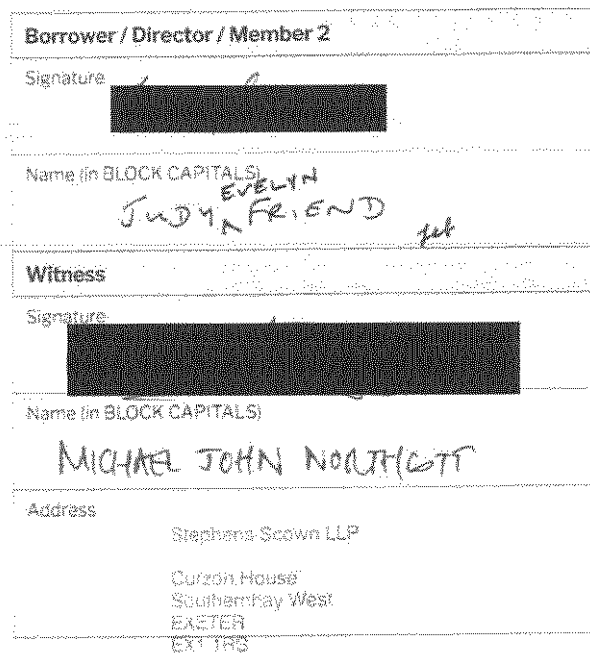 Borrower / Director / Member 2
Signature
Name (in BLOCK CAPITALS)
EVELYN
JUDY ^ FRIEND
Witness
Signature
Name (in BLOCK CAPITALS)
MICHAEL JOHN NORTHCOTT
Address
Stephens Scown LLP
Curzon House
Southernhay West
EXETER
EX1 1RS